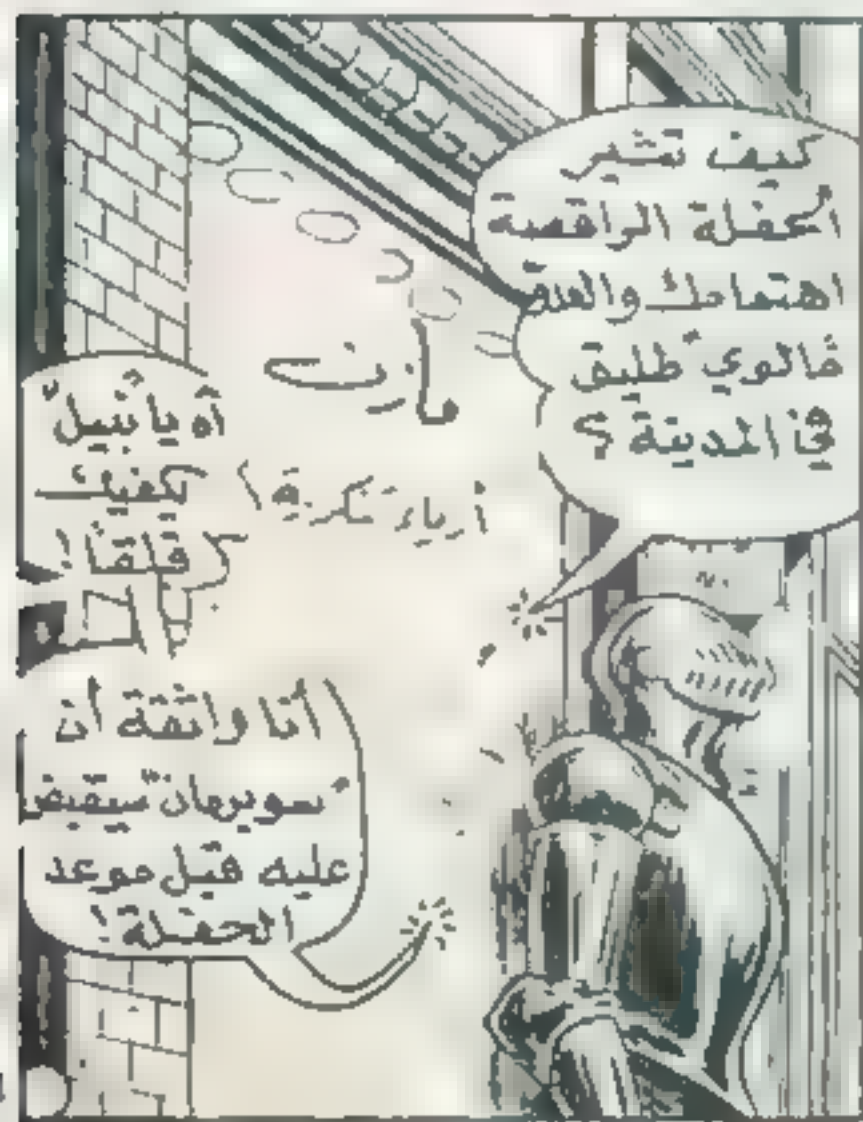 كيف تثير
الحفلة الراقصة
اهتمامك والعدو
"مالوي" طليق
في المدينة ؟
مازن
أزياء تنكرية
آه يا نبيل
يكفيك
قلقاً !
أنا واثقة أن
"سوبرمان" سيقبض
عليه قبل موعد
الحفلة !